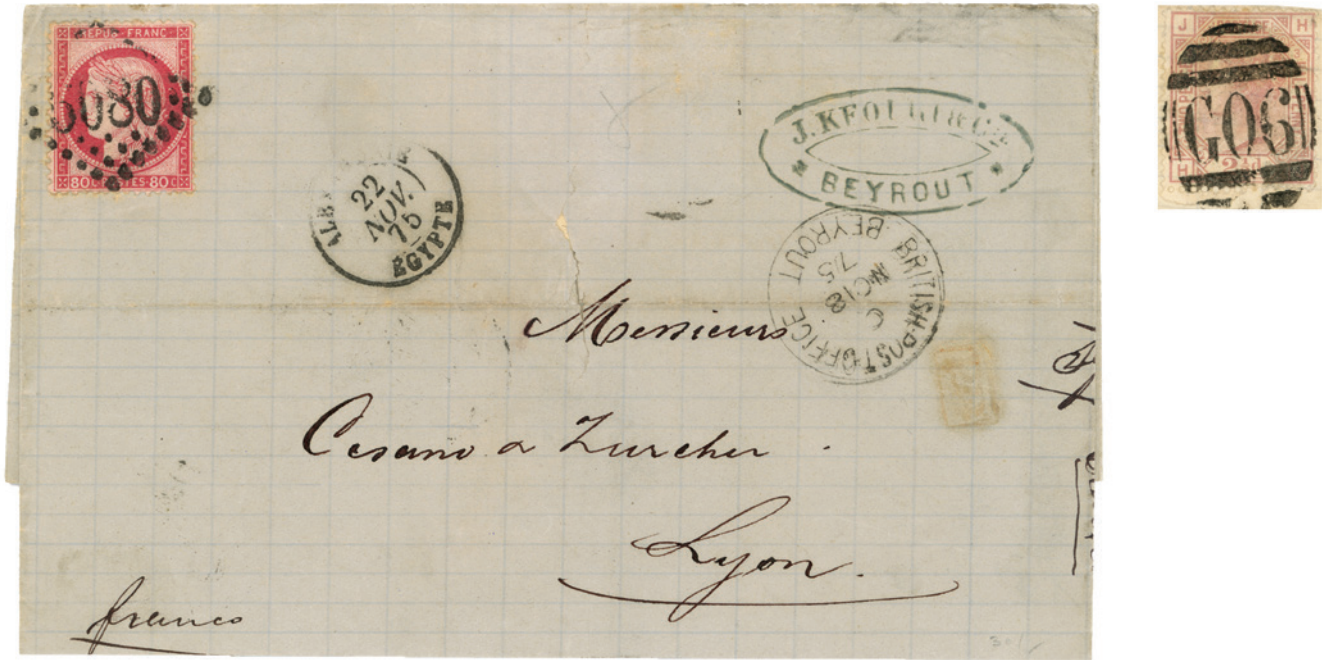 REPUB·FRANC·
5080
80 C POSTES·80 C
22
NOV.
75
EGYPTE
J. KFOURI & CIE
BEYROUT
BRITISH·POST·OFFICE BEYROUT
C
NO 18
75
Messieurs
Cesano & Zurcher
Lyon.
franco
J H
G06
H 2½